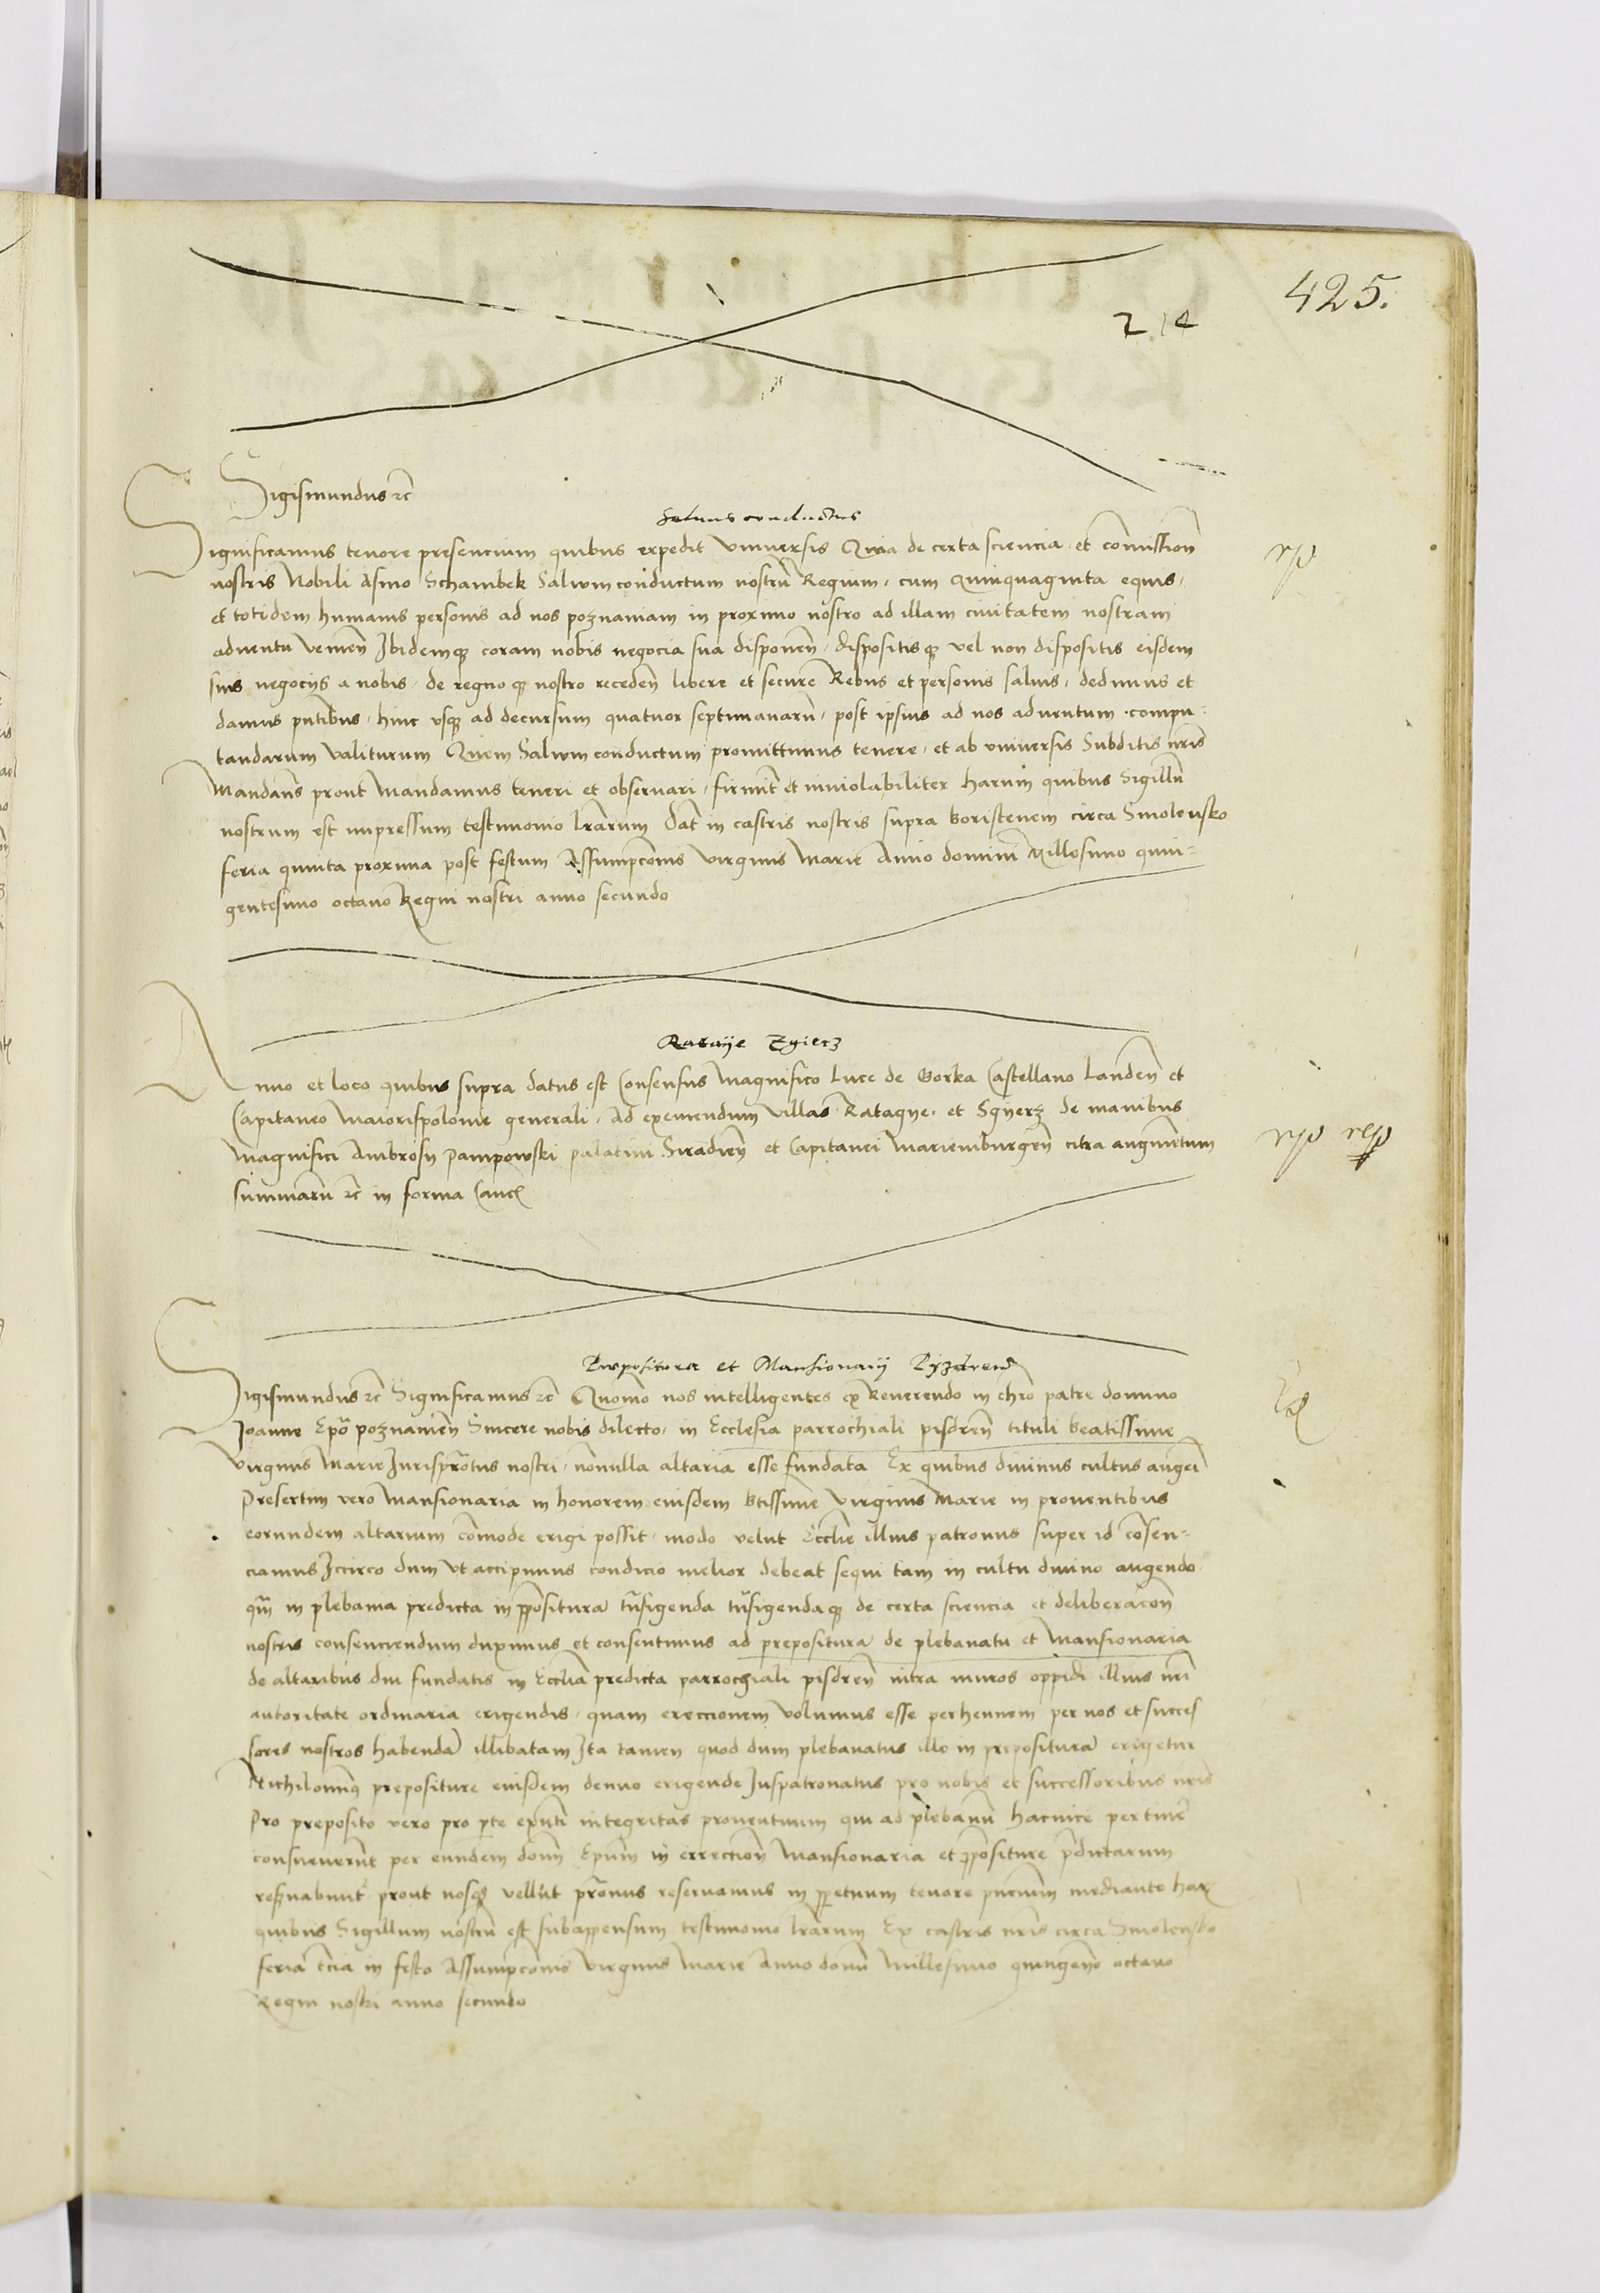 425.
214
Sigismundus etc̄
Salvus conductus
Significamus tenore presencium quibus expedit Vniuersis Quia de certa sciencia et com̄ission̄
nostris Nobili Asmo Schambek Saluum conductum nostrū Regium, cum Quinquaginta equis,
et totidem humanis personis ad nos poznaniam in proximo nostro ad illam ciuitatem nostram
aduentu venien̄ Ibidemqȝ coram nobis negocia sua disponen̄, dispositisqȝ vel non dispositis eisdem
suis negocijs a nobis, de regnoqȝ nostro receden̄ libere et secure Rebus et personis saluis, dedimus et
damus pn̄tibus, hinc vsqȝ ad decursum quatuor septimanarū, post ipsius ad nos aduentum compu-
tandarum valiturum Quem Saluum conductum promittimus tenere, et ab vniuersis Subditis nr̄is
Mandan̄s prout mandamus teneri et obseruari, firmit̄ et inuiolabiliter Harum quibus Sigillū
nostrum est impressum testimonio lr̄arum Dat̄ in castris nostris supra boristenem circa Smolensko
feria quinta proxima post festum Assumpc̄onis virginis Marie Anno domini Millesimo quin-
gentesimo octauo Regni nostri anno secundo
Rataije Zgierz
Anno et loco quibus supra datus est Consensus Magnifico Luce de Gorka Castellano Landen̄ et
Capitaneo Maiorispolonie generali, ad eximendum villas Ratagye et Sgyerz de manibus
Magnifici Ambrosij Pampowski palatini Siradien̄ et Capitanei Mariemburgen̄ citra augmētum
summarū etc̄ in forma Canc̄
Praepositura et Mansionarij Pyzdren̄
Sigismundus etc̄ Significamus etc̄ Quomō nos intelligentes ex Reuerendo in chr̄o patre domino
Joanne Ep̄o poznanien̄ Sincere nobis dilecto, in Ecclesia parrochiali pisdren̄ tituli beatissime
Virginis Marie Jurispr̄otus nostri, nōnulla altaria esse fundata Ex quibus diuinus cultus augeri
Presertim vero Mansionaria in honorem eiusdem bt̄issime virginis Marie in prouentibus
eorundem altarium cōmode erigi possit, modo velut Eccl̄ie illius patronus super id cōsen-
ciamus Iccirco dum vt accipimus condicio melior debeat sequi tam in cultu diuino augendo
qm̄ in plebania predicta in p̄positura tr̄sigenda tr̄sigendaqȝ de certa sciencia et deliberac̄on̄
nostris consenciendum duximus et consentimus ad prepositurā de plebanatu et Mansionaria
de altaribus diu fundatis in Eccl̄ia predicta parrochiali pisdren̄ intra muros oppidi illius nr̄i
autoritate ordinaria erigendis, quam ereccionem volumus esse perhennem per nos et succes
sores nostros habendā illibatam Ita tamen quod dum plebanatus ille in preposituram erigetur
Nichilominqȝ prepositure eiusdem denuo erigende Juspatronatus pro nobis et successoribus nr̄is
Pro preposito vero pro pte integritas prouentuum qui ad plebanū hacuice pertinē
consueuerūt per eundem domn̄ Ep̄um in errection̄ Mansionaria et p̄positure p̄dictarum
reseruabunt prout nosqȝ velut pr̄onus reseruamus in p̄petuum tenore pn̄cium mediante har
quibus Sigillum nostrū est subappensum testimonio lr̄arum Ex castris nr̄is circa Smolensko
feria tc̄ia in festo Assumpc̄onis virginis Marie Anno domī Millesimo quingen̄o octauo
Regni nostri anno secundo